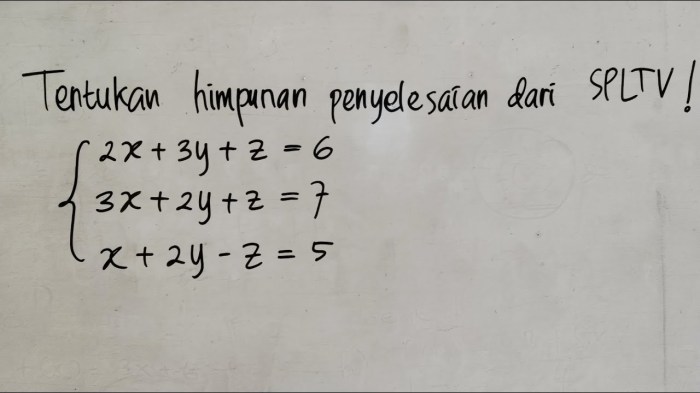 Tentukan himpunan penyelesaian dari SPLTV!
2x + 3y + z = 6
3x + 2y + z = 7
x + 2y - z = 5